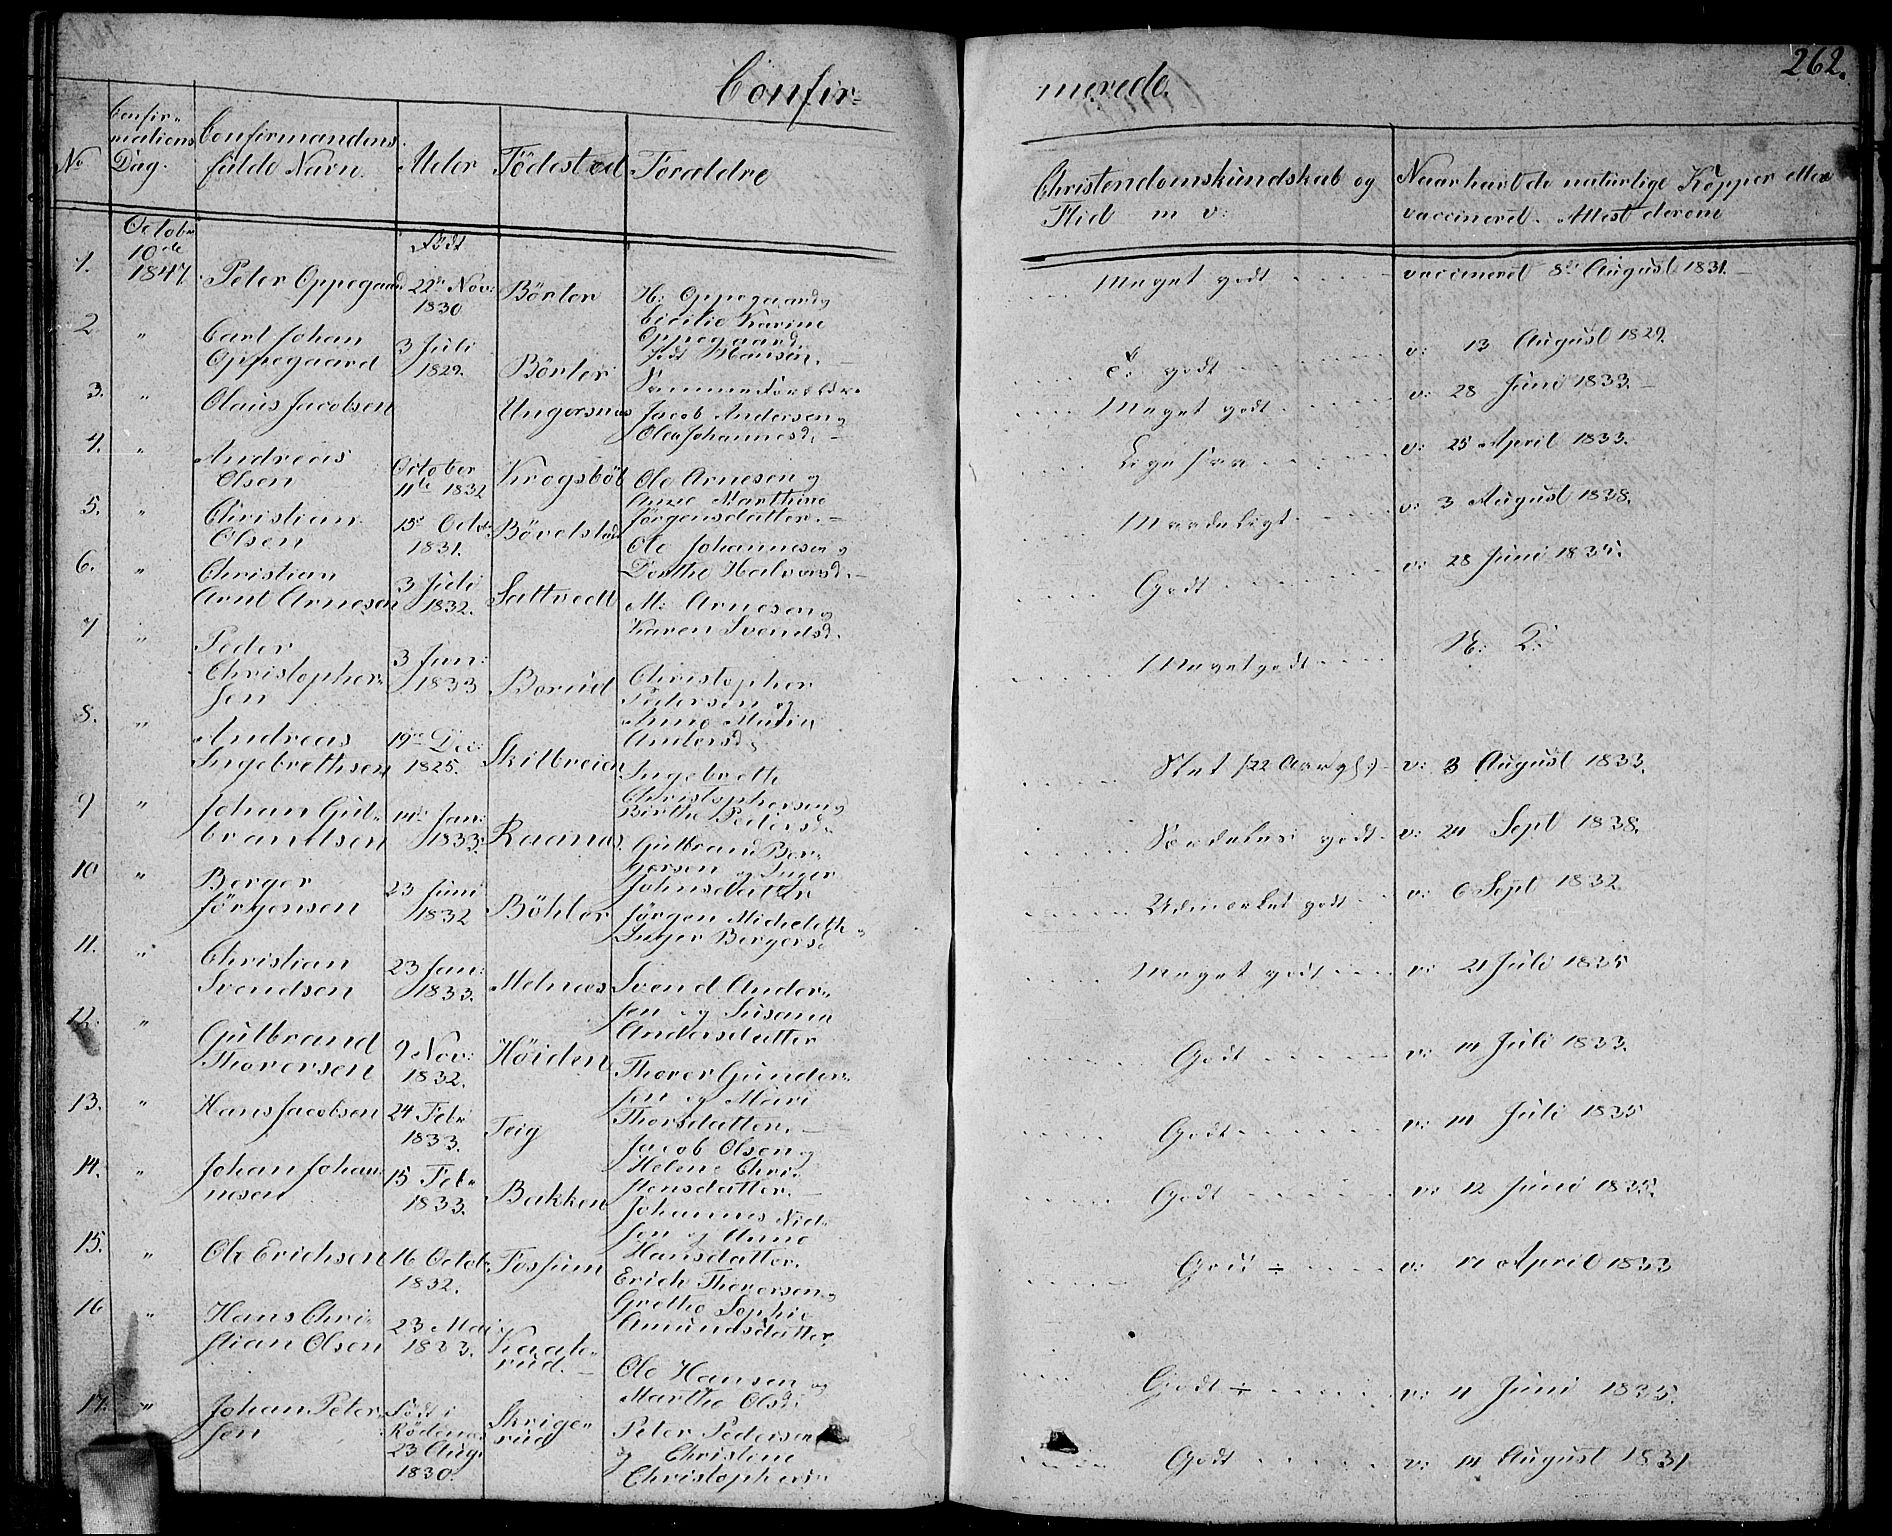 262.
Confir-
merede.
No
Confir-
mations
Dag.
Confirmandens
fulde Navn.
Alder
Födested
Forældre
Christendomskundskab og
Flid m v:
Naar havt de naturlige Kopper eller
vaccineret. Attest derom
1.
Octobr
10de
1847
Peter Oppegaard
Födt
22de Nov:
1830
Börter
H: Oppegaard og
Cicilie Karine
Oppegaard
født Hansen.
Meget godt
vaccineret 8de August 1831.
2
"
Carl Johan
Oppegaard
3 Juli
1829.
Börter
Samme Forældre
godt
v: 13 August 1829.
3.
"
Olaus Jacobsen
Ungersnes
Jacob Andersen og
Olea Johannesd.
Meget godt
v: 28 Juni 1833.
4.
"
Andreas
Olsen
October
11te 1832
Krogsböl
Ole Arnesen og
Anne Marthine
Jörgensdatter.
Lige saa
v: 25 April 1833.
5.
"
Christian
Olsen
15de Octbr
1831.
Börelstad
Ole Johannesen og
Dorthe Halvorsd.
Maadeligt
v: 3 August 1838.
6.
"
Christian
Arnt Arnesen
3 Juli
1832.
Sattvedt
M: Arnesen og
Karen Svendsd.
Godt
v: 28 Juni 1835.
7
"
Peder
Christopher-
sen
3 Jan:
1833
Borud
Christopher
Pedersen og
Anne Maria
Andersd
Meget godt
8.
"
Andreas
Ingebrethsen
19de Dec:
1825.
Skilbreien
Ingebreth
Christophersen og
Birthe Pedersd.
Slet (22 Aar gl:)
v: 3 August 1833.
9
"
Johan Gul-
brandsen
14de Jan:
1833.
Raanas
Gulbrand Ber-
gersen og Inger
Johnsdatter
Særdeles godt
v: 24 Sept 1838.
10
"
Berger
Jörgensen
23 Juni
1832
Böhler
Jörgen
Inger Bergersd
Udmærket godt
v: 6 Sept 1832
11.
"
Christian
Svendsen
23 Jan:
1833.
Melnæs
Svend Ander-
sen og Susana
Andersdatter
Meget godt
v: 21 Juli 1835
12.
"
Gulbrand
Thoversen
9 Nov:
1832.
Höiden
Thover Gunder-
sen og Mari
Thorsdatter.
Godt
v: 14 Juli 1833.
13.
"
Hans Jacobsen
24 Feb:
1833.
Teig
Jacob Olsen og
Helene Chri-
stensdatter.
Godt
v: 14 Juli 1835
14.
"
Johan Johan-
nesen
15 Feb:
1833.
Bakken
Johannes Niel-
sen og Anne
Hansdatter.
Godt
v: 12 Juni 1835.
15.
"
Ole Erichsen
16 Octob:
1832.
Fossum
Erich Thoversen og
Grethe Sophie
Amundsdatter,
Godt ÷
v: 17 April 1833
16
"
Hans Chri-
stian Olsen
23 Mai
1833.
Kaate-
rud.
Ole Hansen og
Marthe Olsd:
Godt ÷
v: 11 Juni 1835.
17.
"
Johan Peter-
sen
Födt i
Rödenæs
23 Aug:
1830.
Skrige-
rud
Peter Pedersen
og Christine
Christophersd
Godt
v: 14 August 1831